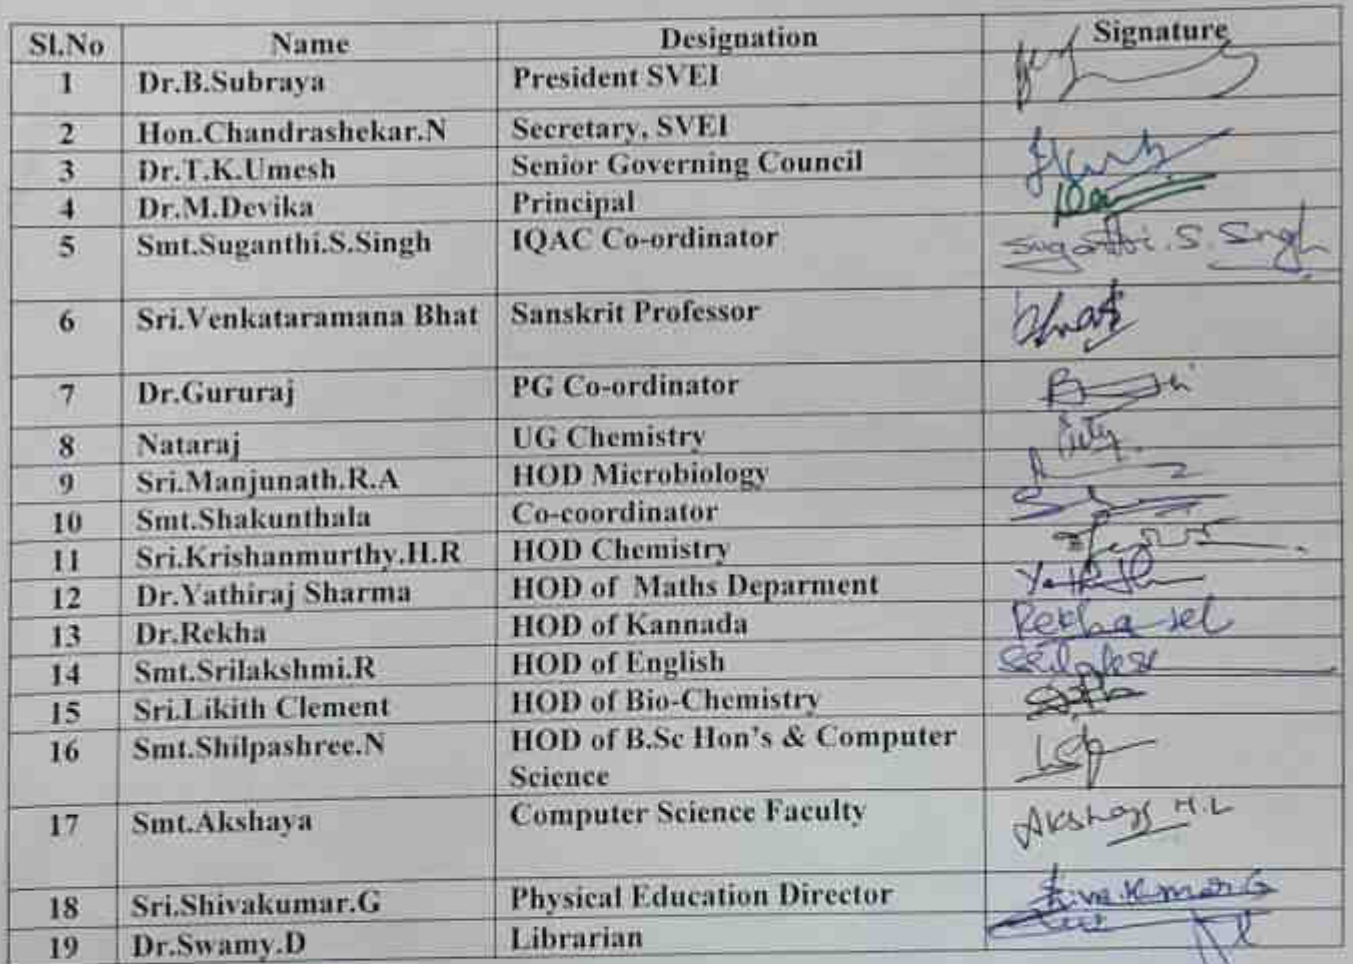 Sl.No Name Designation Signature
1 Dr.B.Subraya President SVEI
2 Hon.Chandrashekar.N Secretary, SVEI
3 Dr.T.K.Umesh Senior Governing Council
4 Dr.M.Devika Principal
5 Smt.Suganthi.S.Singh IQAC Co-ordinator Suganthi.S.Singh
6 Sri.Venkataramana Bhat Sanskrit Professor Bhat
7 Dr.Gururaj PG Co-ordinator
8 Nataraj UG Chemistry
9 Sri.Manjunath.R.A HOD Microbiology
10 Smt.Shakunthala Co-coordinator
11 Sri.Krishanmurthy.H.R HOD Chemistry
12 Dr.Yathiraj Sharma HOD of Maths Deparment
13 Dr.Rekha HOD of Kannada Rekha
14 Smt.Srilakshmi.R HOD of English
15 Sri.Likith Clement HOD of Bio-Chemistry
16 Smt.Shilpashree.N HOD of B.Sc Hon's & Computer
Science
17 Smt.Akshaya Computer Science Faculty Akshaya H.L
18 Sri.Shivakumar.G Physical Education Director Shivakumar G
19 Dr.Swamy.D Librarian